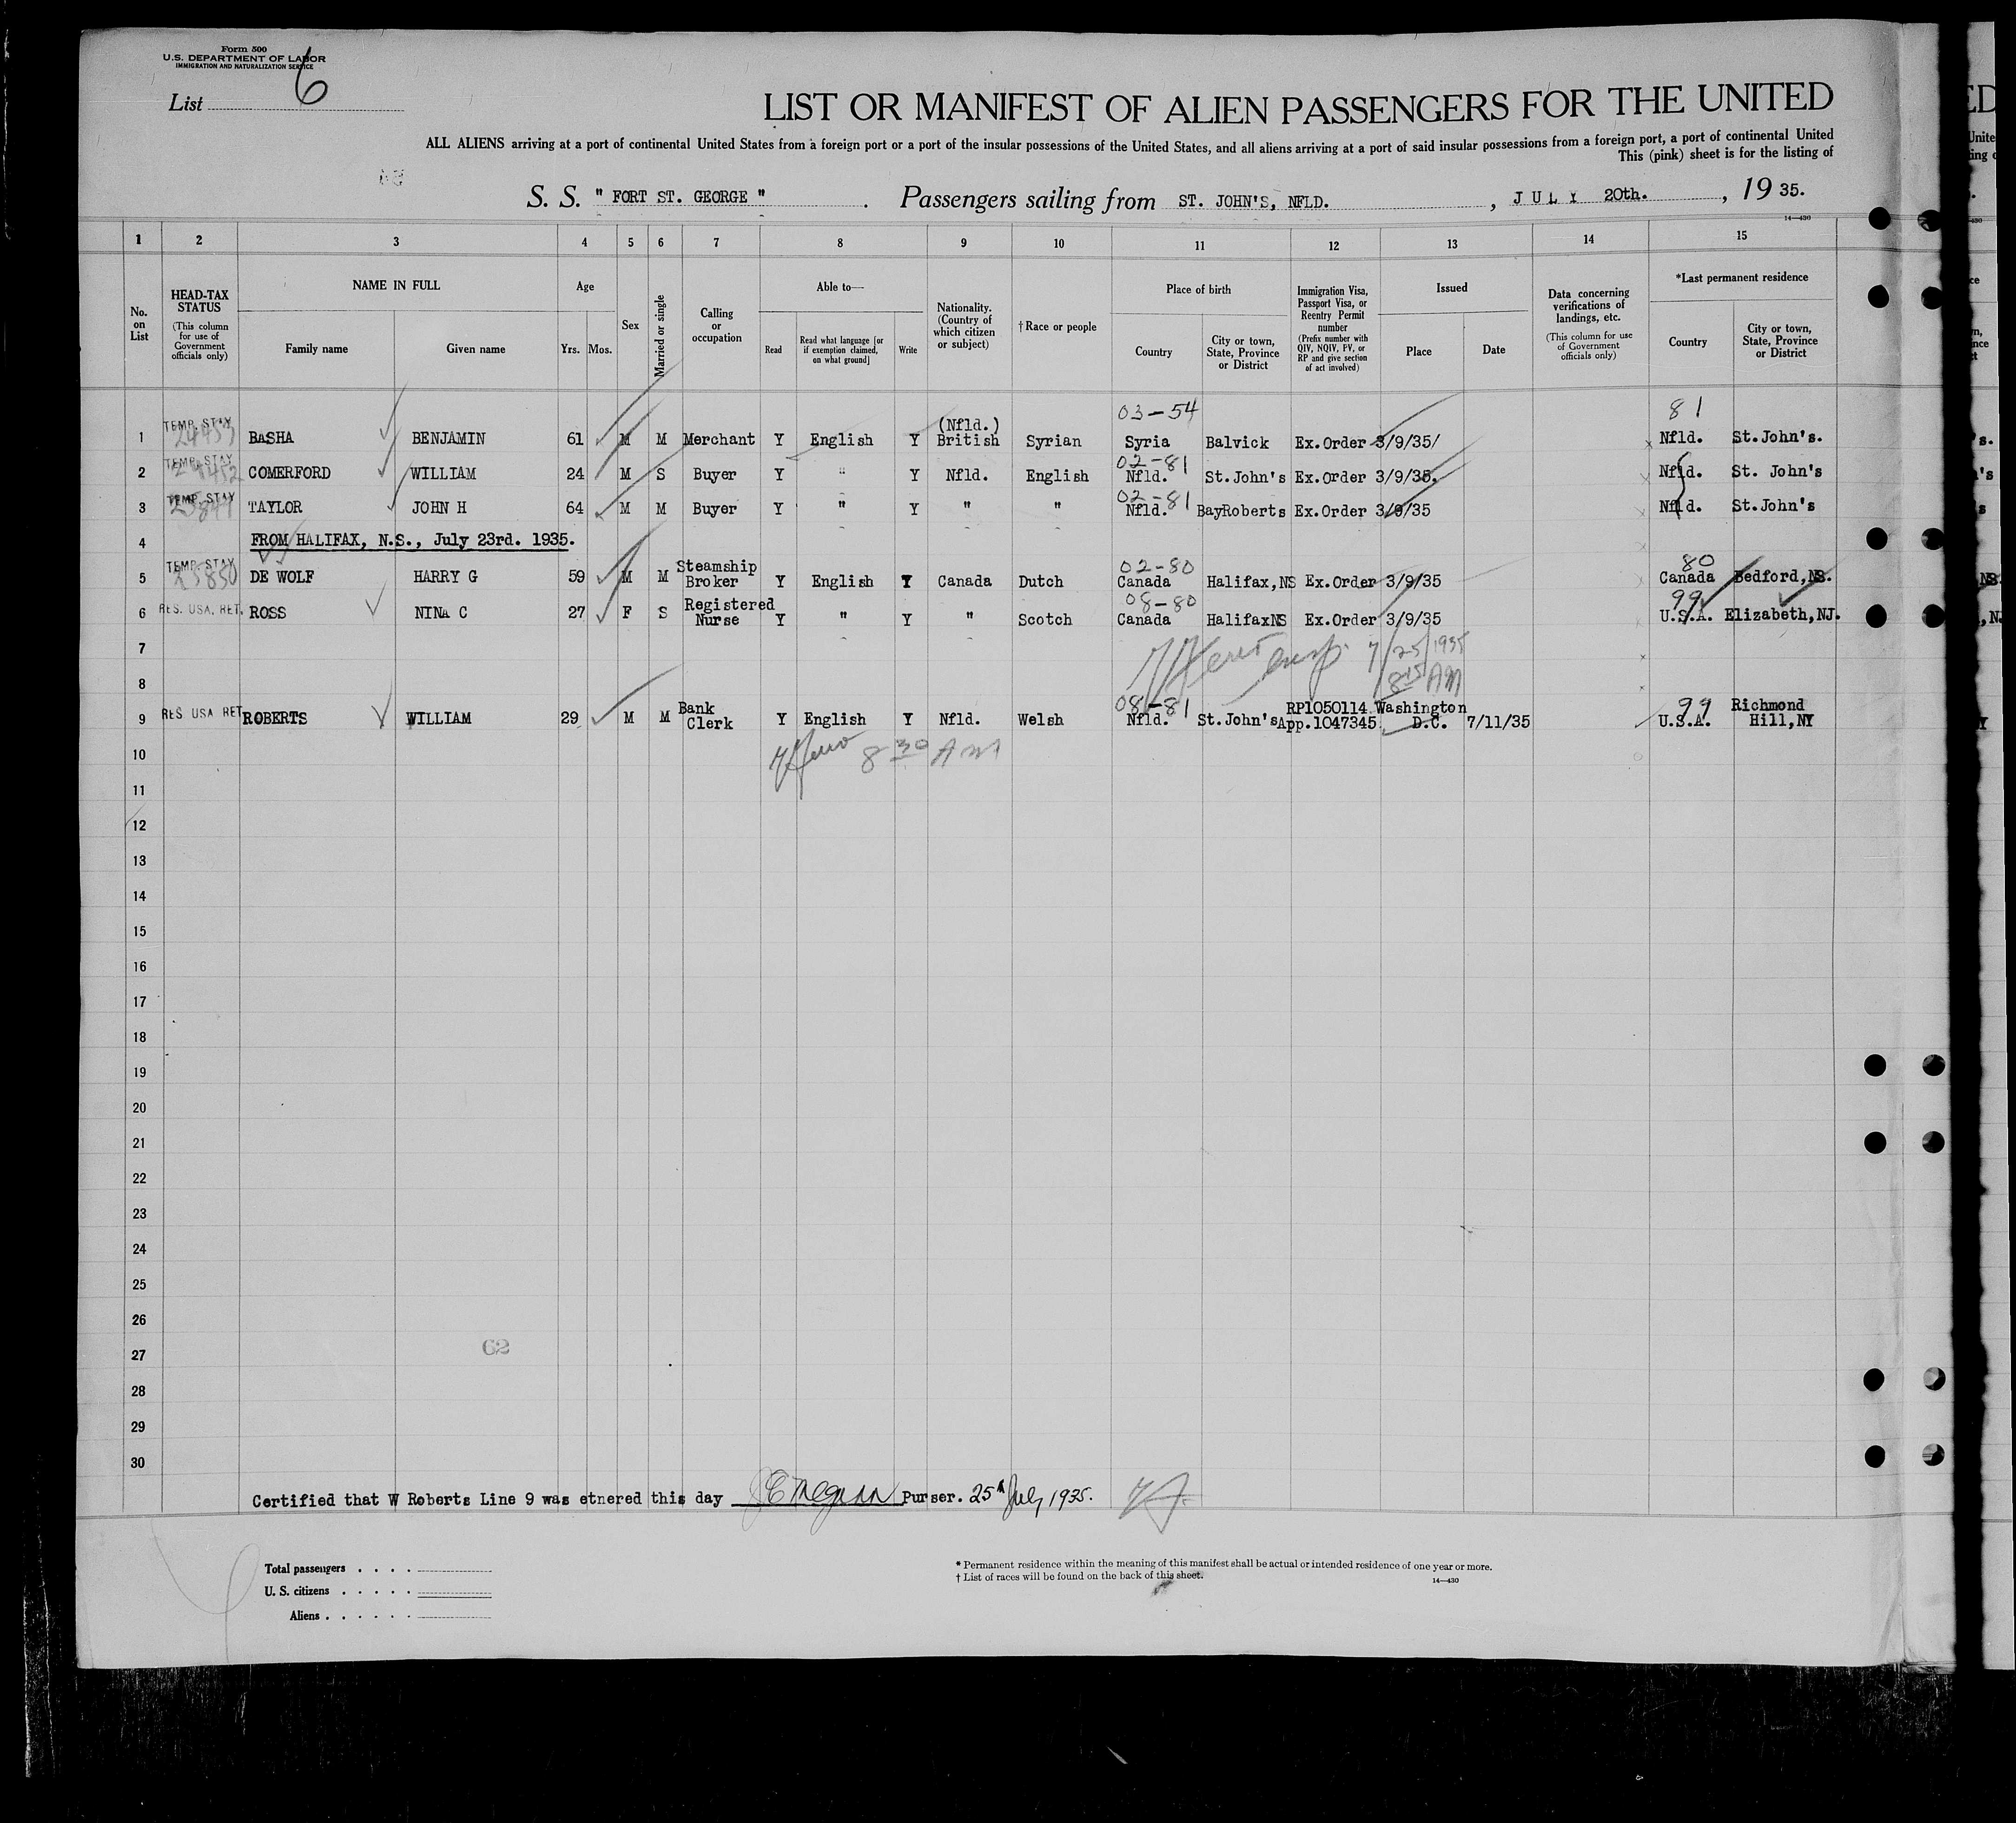 Form 500
U.S. DEPARTMENT OF LABOR
IMMIGRATION AND NATURALIZATION SERVICE
List 6
LIST OR MANIFEST OF ALIEN PASSENGERS FOR THE UNITED
ALL ALIENS arriving at a port of continental United States from a foreign port or a port of the insular possessions of the United States, and all aliens arriving at a port of said insular possessions from a foreign port, a port of continental United
This (pink) sheet is for the listing of
S. S. " FORT ST. GEORGE " . Passengers sailing from ST. JOHN'S, NFLD. , JULY 20th. , 19 35.
14—430
1 2 3 4 5 6 7 8 9 10 11 12 13 14 15
No. on List
HEAD-TAX STATUS (This column for use of Government officials only)
NAME IN FULL
Family name Given name
Age
Yrs. Mos.
Sex
Married or single
Calling or occupation
Able to—
Read
Read what language [or if exemption claimed, on what ground]
Write
Nationality. (Country of which citizen or subject)
†Race or people
Place of birth
Country
City or town, State, Province or District
Immigration Visa, Passport Visa, or Reentry Permit number (Prefix number with QIV, NQIV, PV, or RP and give section of act involved)
Issued
Place Date
Data concerning verifications of landings, etc. (This column for use of Government officials only)
*Last permanent residence
Country
City or town, State, Province or District
03-54 81
1 TEMP. STAY BASHA BENJAMIN 61 M M Merchant Y English Y (Nfld.) British Syrian Syria Balvick Ex.Order 3/9/35/ Nfld. St.John's.
02-81
2 TEMP. STAY COMERFORD WILLIAM 24 M S Buyer Y " Y Nfld. English Nfld. St.John's Ex.Order 3/9/35. Nfld. St. John's
02-81
3 TEMP. STAY TAYLOR JOHN H 64 M M Buyer Y " Y " " Nfld. BayRoberts Ex.Order 3/9/35 Nfld. St.John's
4 FROM HALIFAX, N.S., July 23rd. 1935.
02-80 80
5 TEMP. STAY 23850 DE WOLF HARRY G 59 M M Steamship Broker Y English Y Canada Dutch Canada Halifax,NS Ex.Order 3/9/35 Canada Bedford,NS.
08-80 99
6 RES. USA, RET. ROSS NINA C 27 F S Registered Nurse Y " Y " Scotch Canada HalifaxNS Ex.Order 3/9/35 U.S.A. Elizabeth,NJ.
7 insp. 7/25/1935
8 8 15 AM
08-81 99
9 RES USA RET ROBERTS WILLIAM 29 M M Bank Clerk Y English Y Nfld. Welsh Nfld. St.John's RP1050114 App.1047345 Washington D.C. 7/11/35 U.S.A. Richmond Hill,NY
10 8 30 AM
11
12
13
14
15
16
17
18
19
20
21
22
23
24
25
26
27 62
28
29
30
Certified that W Roberts Line 9 was etnered this day Purser. 25th July 1935.
Total passengers . . . .
U. S. citizens . . . . .
Aliens . . . . . .
* Permanent residence within the meaning of this manifest shall be actual or intended residence of one year or more.
† List of races will be found on the back of this sheet.
14—430